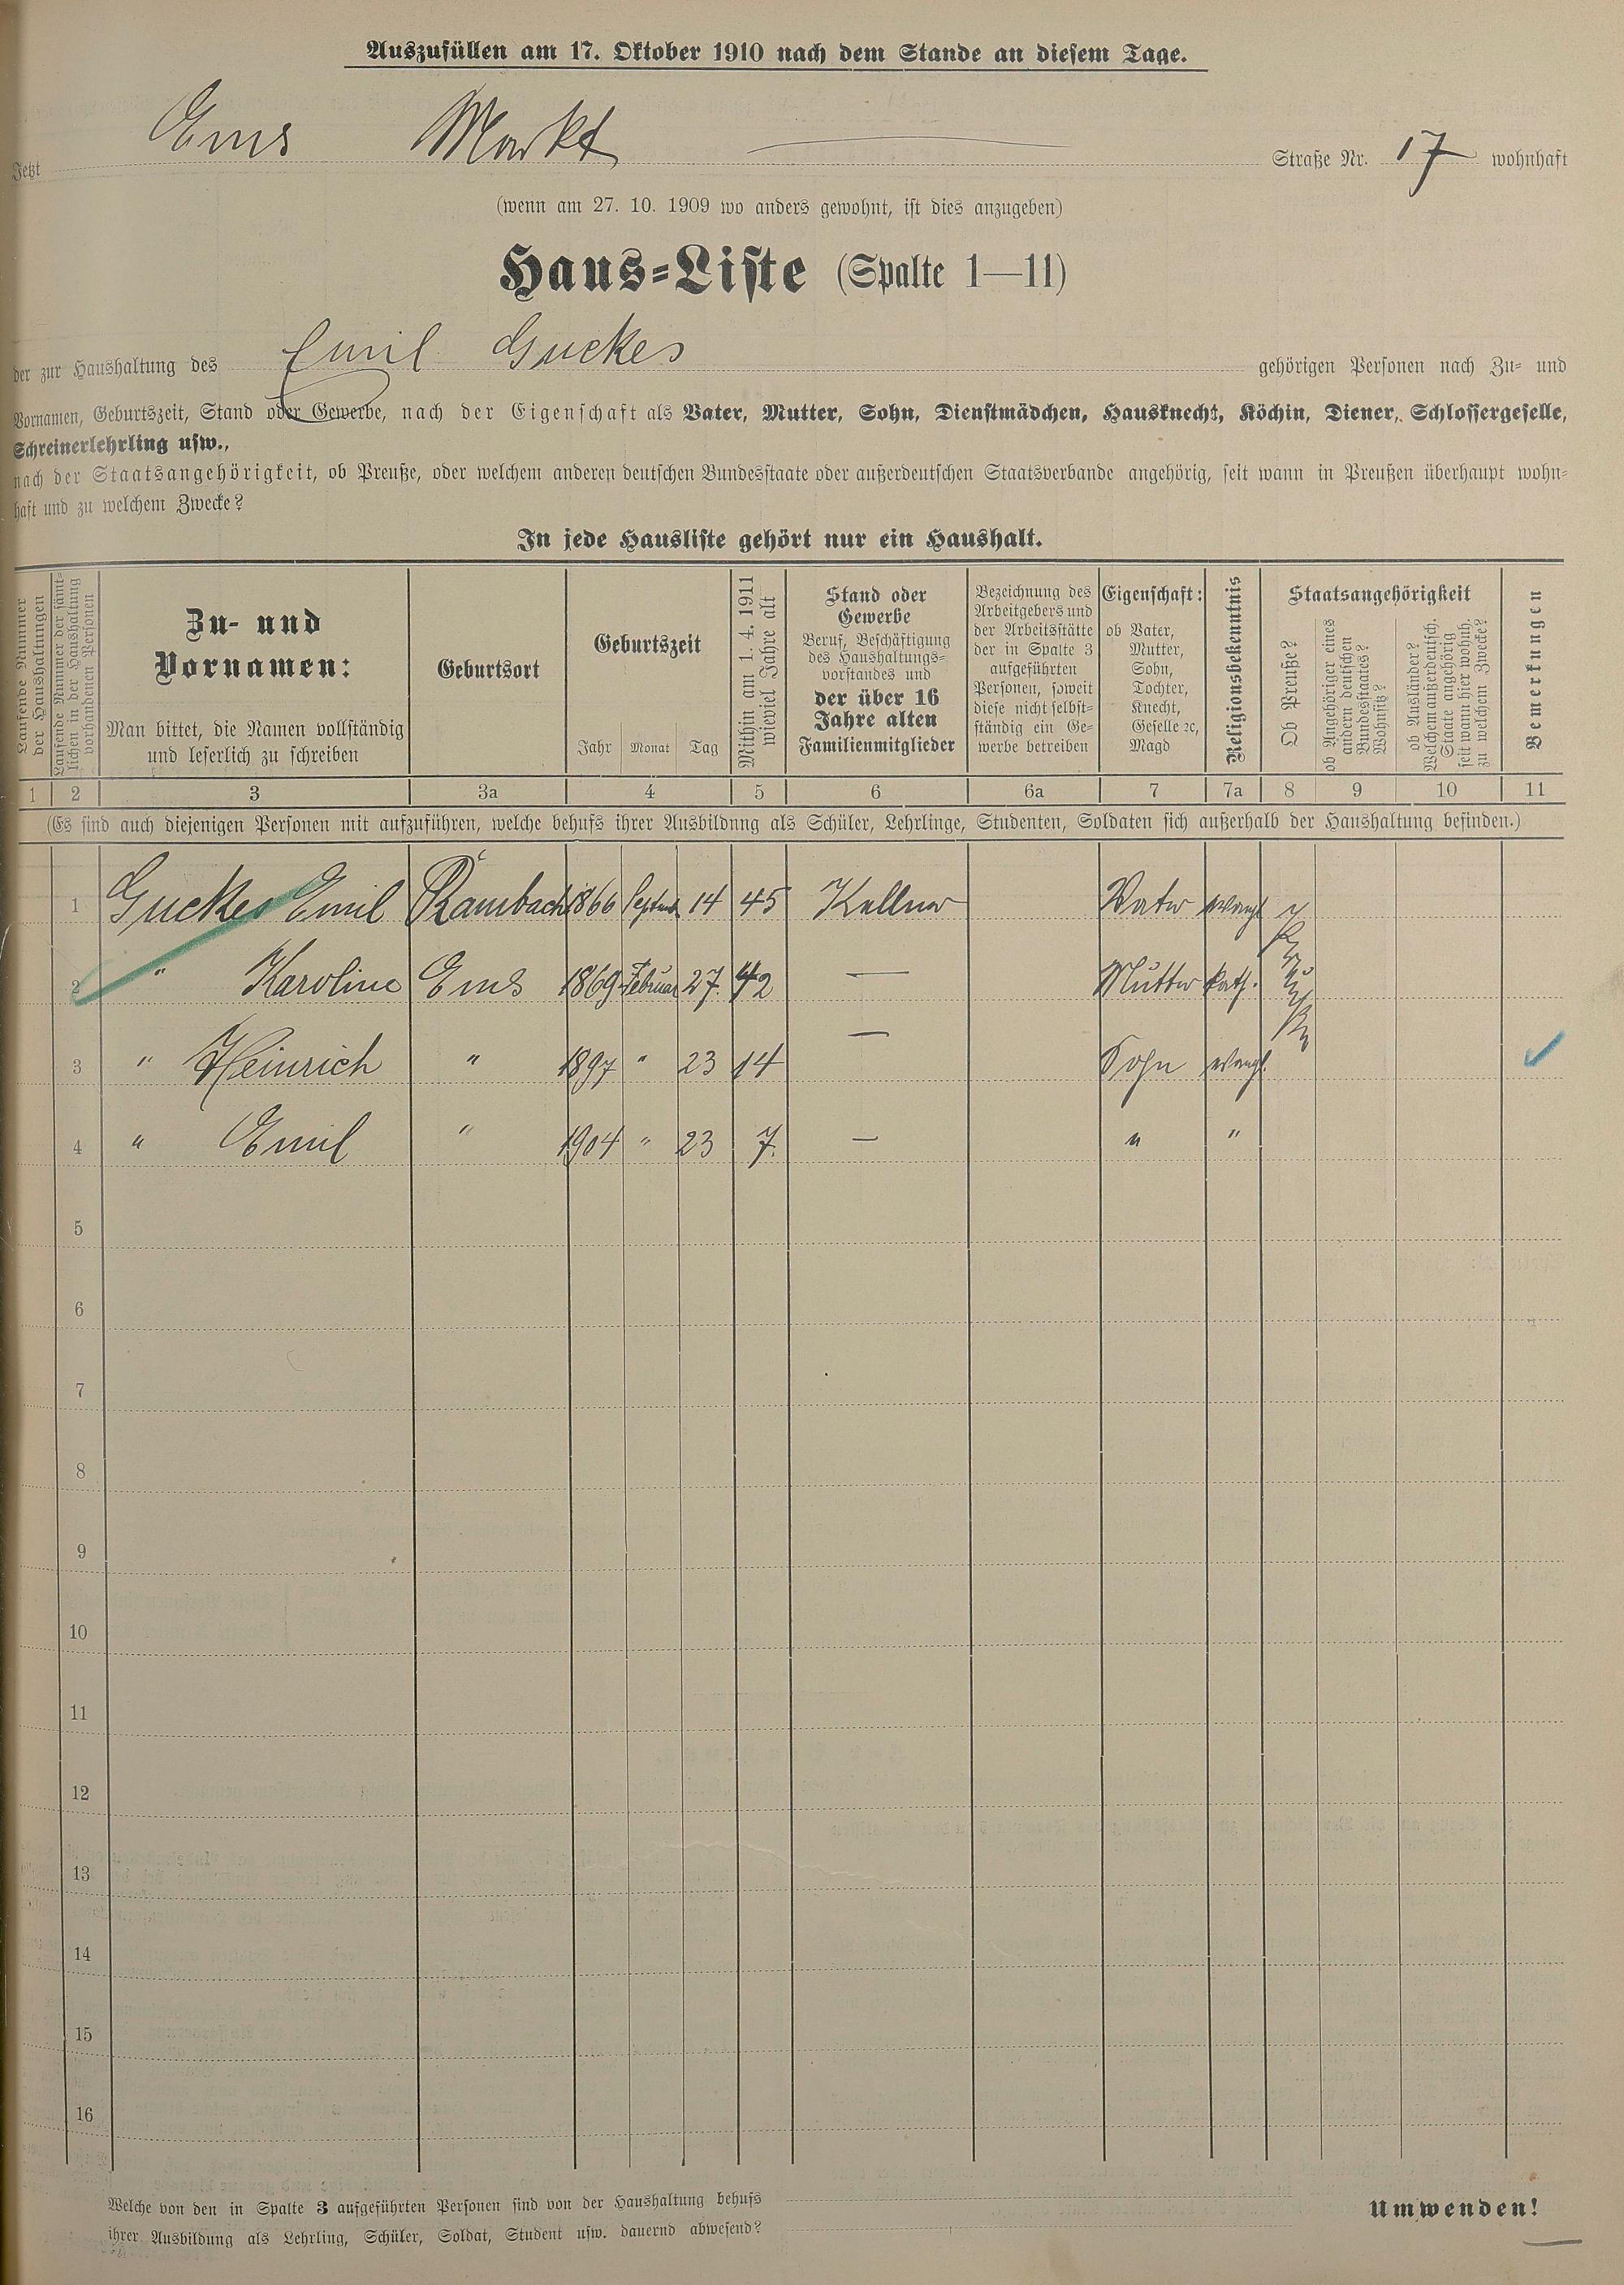 Auszufüllen am 17. Oktober 1910 nach dem Stande an diesem Tage.
Jetzt Ems Markt Straße Nr. 17 wohnhaft
(wenn am 27. 10. 1909 wo anders gewohnt, ist dies anzugeben)
Haus-Liste (Spalte 1—11)
der zur Haushaltung des Emil Guckes gehörigen Personen nach Zu- und
Vornamen, Geburtszeit, Stand oder Gewerbe, nach der Eigenschaft als Vater, Mutter, Sohn, Dienstmädchen, Hausknecht, Köchin, Diener, Schlossergeselle,
Schreinerlehrling usw.,
nach der Staatsangehörigkeit, ob Preuße, oder welchem anderen deutschen Bundesstaate oder außerdeutschen Staatsverbande angehörig, seit wann in Preußen überhaupt wohn-
haft und zu welchem Zwecke?
In jede Hausliste gehört nur ein Haushalt.
Laufende Nummer
der Haushaltungen
Laufende Nummer der sämt-
lichen in der Haushaltung
vorhandenen Personen
Zu- und
Vornamen:
Man bittet, die Namen vollständig
und leserlich zu schreiben
Geburtsort
Geburtszeit
Jahr Monat Tag
Mithin am 1. 4. 1911
wieviel Jahre alt
Stand oder
Gewerbe
Beruf, Beschäftigung
des Haushaltungs-
vorstandes und
der über 16
Jahre alten
Familienmitglieder
Bezeichnung des
Arbeitgebers und
der Arbeitsstätte
der in Spalte 3
aufgeführten
Personen, soweit
diese nicht selbst-
ständig ein Ge-
werbe betreiben
Eigenschaft:
ob Vater,
Mutter,
Sohn,
Tochter,
Knecht,
Geselle ꝛc,
Magd
Religionsbekenntnis
Staatsangehörigkeit
Ob Preuße?
ob Angehöriger eines
andern deutschen
Bundesstaates?
Wohnsitz?
ob Ausländer?
Welchem außerdeutsch.
Staate angehörig
seit wann hier wohnh.
zu welchem Zwecke?
Bemerkungen
1 2 3 3a 4 5 6 6a 7 7a 8 9 10 11
(Es sind auch diejenigen Personen mit aufzuführen, welche behufs ihrer Ausbildung als Schüler, Lehrlinge, Studenten, Soldaten sich außerhalb der Haushaltung befinden.)
1 Guckes Emil Rambach 1866 Septemb 14 45 Kellner Vater evangl
2 " Karoline Ems 1869 Februar 27. 42 — Mutter kath.
3 " Heinrich " 1897 " 23 14 — Sohn evangl.
4 " Emil " 1904 " 23 7. — " "
5
6
7
8
9
10
11
12
13
14
15
16
Welche von den in Spalte 3 aufgeführten Personen sind von der Haushaltung behufs
ihrer Ausbildung als Lehrling, Schüler, Soldat, Student usw. dauernd abwesend?
Umwenden!